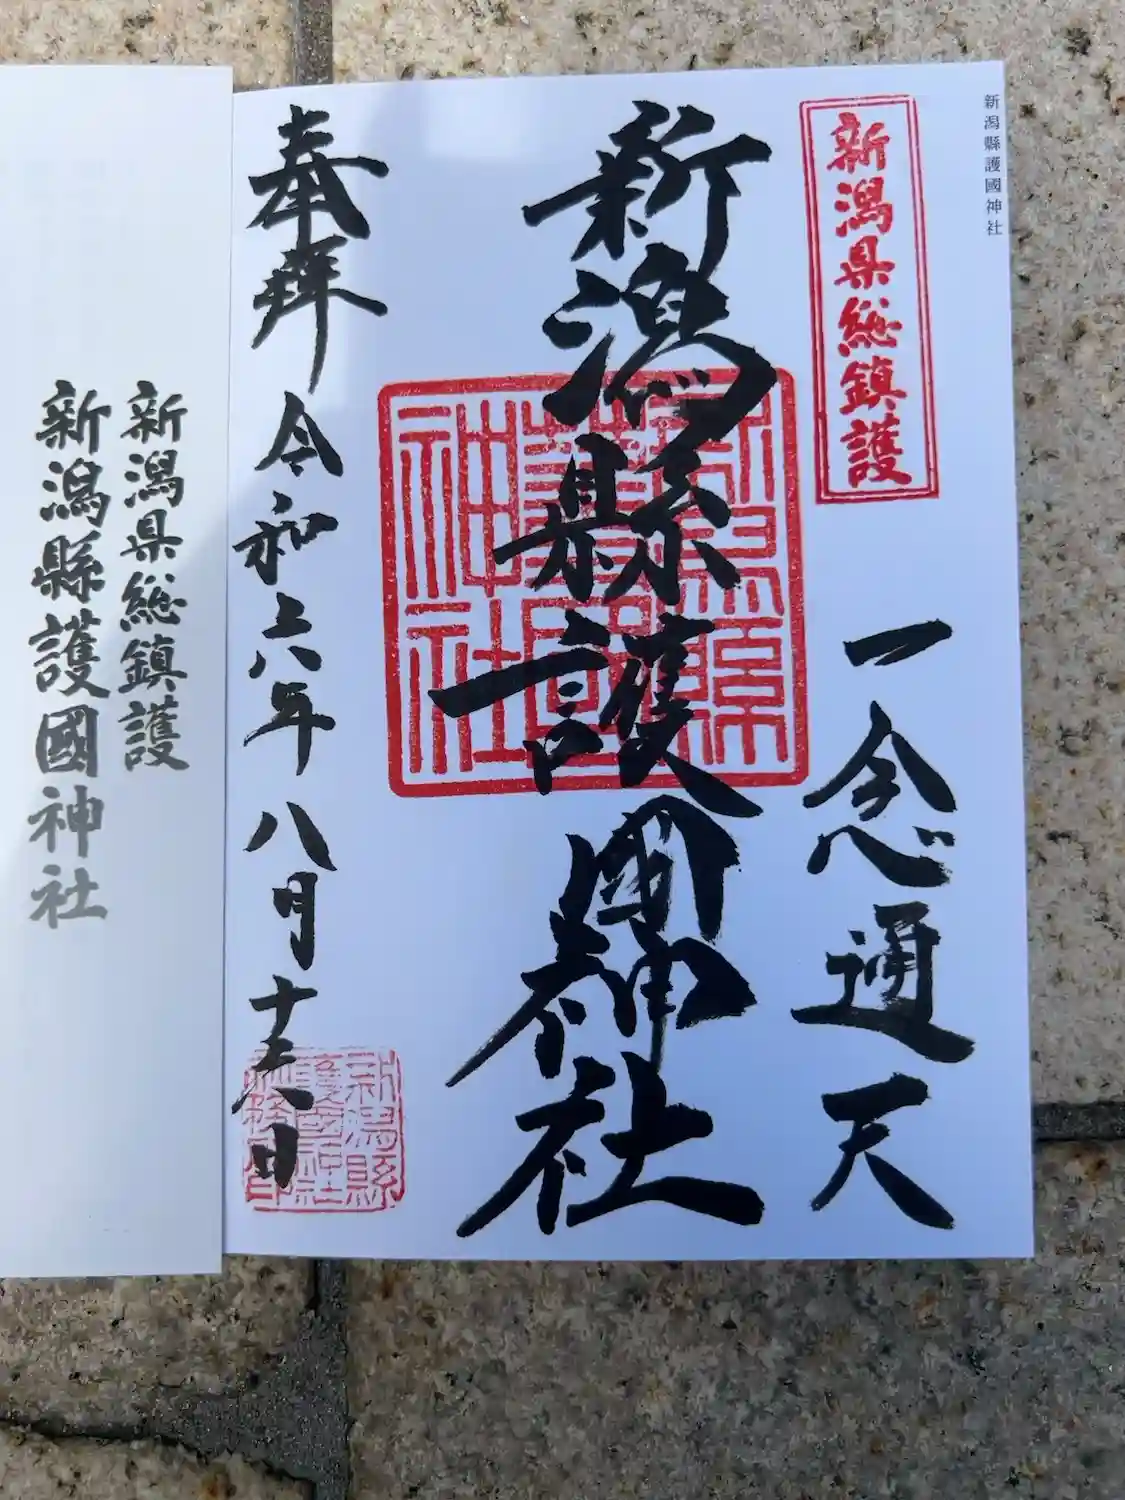 新潟縣護國神社
新潟県総鎮護
一念通天
新潟縣護國神社
新潟縣護國神社
奉拝 令和六年八月十六日
新潟縣護國神社社務所印
新潟県総鎮護
新潟縣護國神社